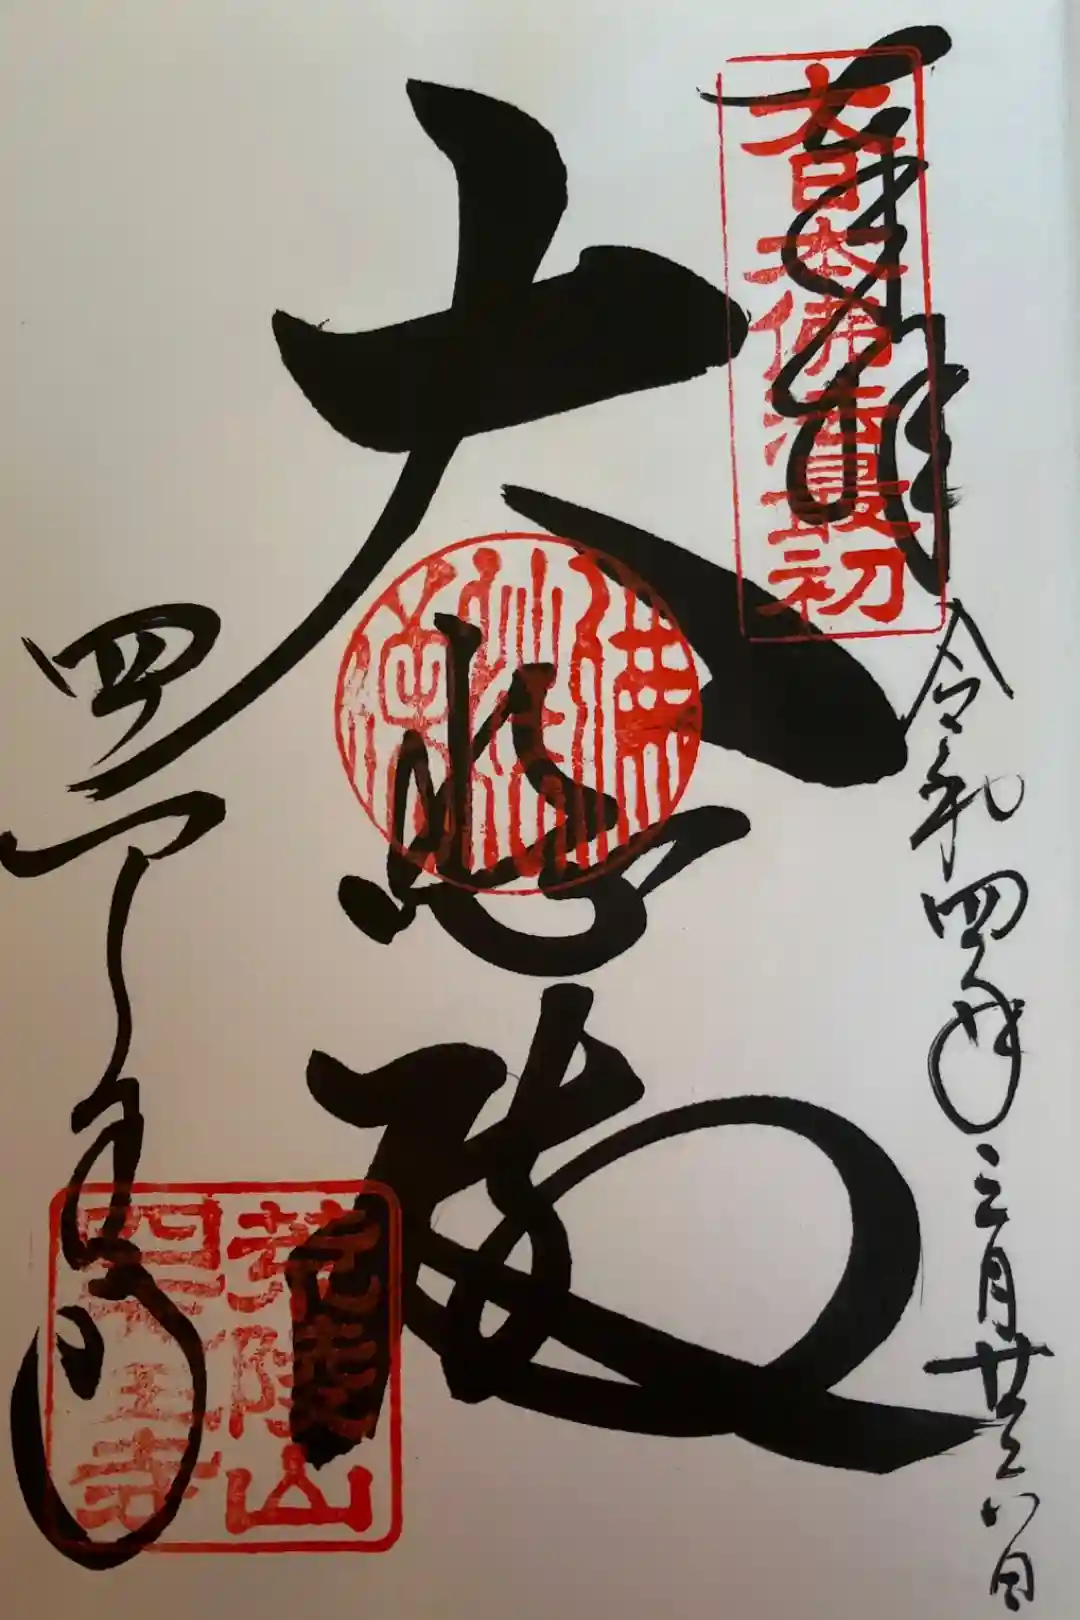 奉拝
大日本佛法最初
令和四年三月廿六日
大悲殿
四天王寺
荒陵山
四天王寺